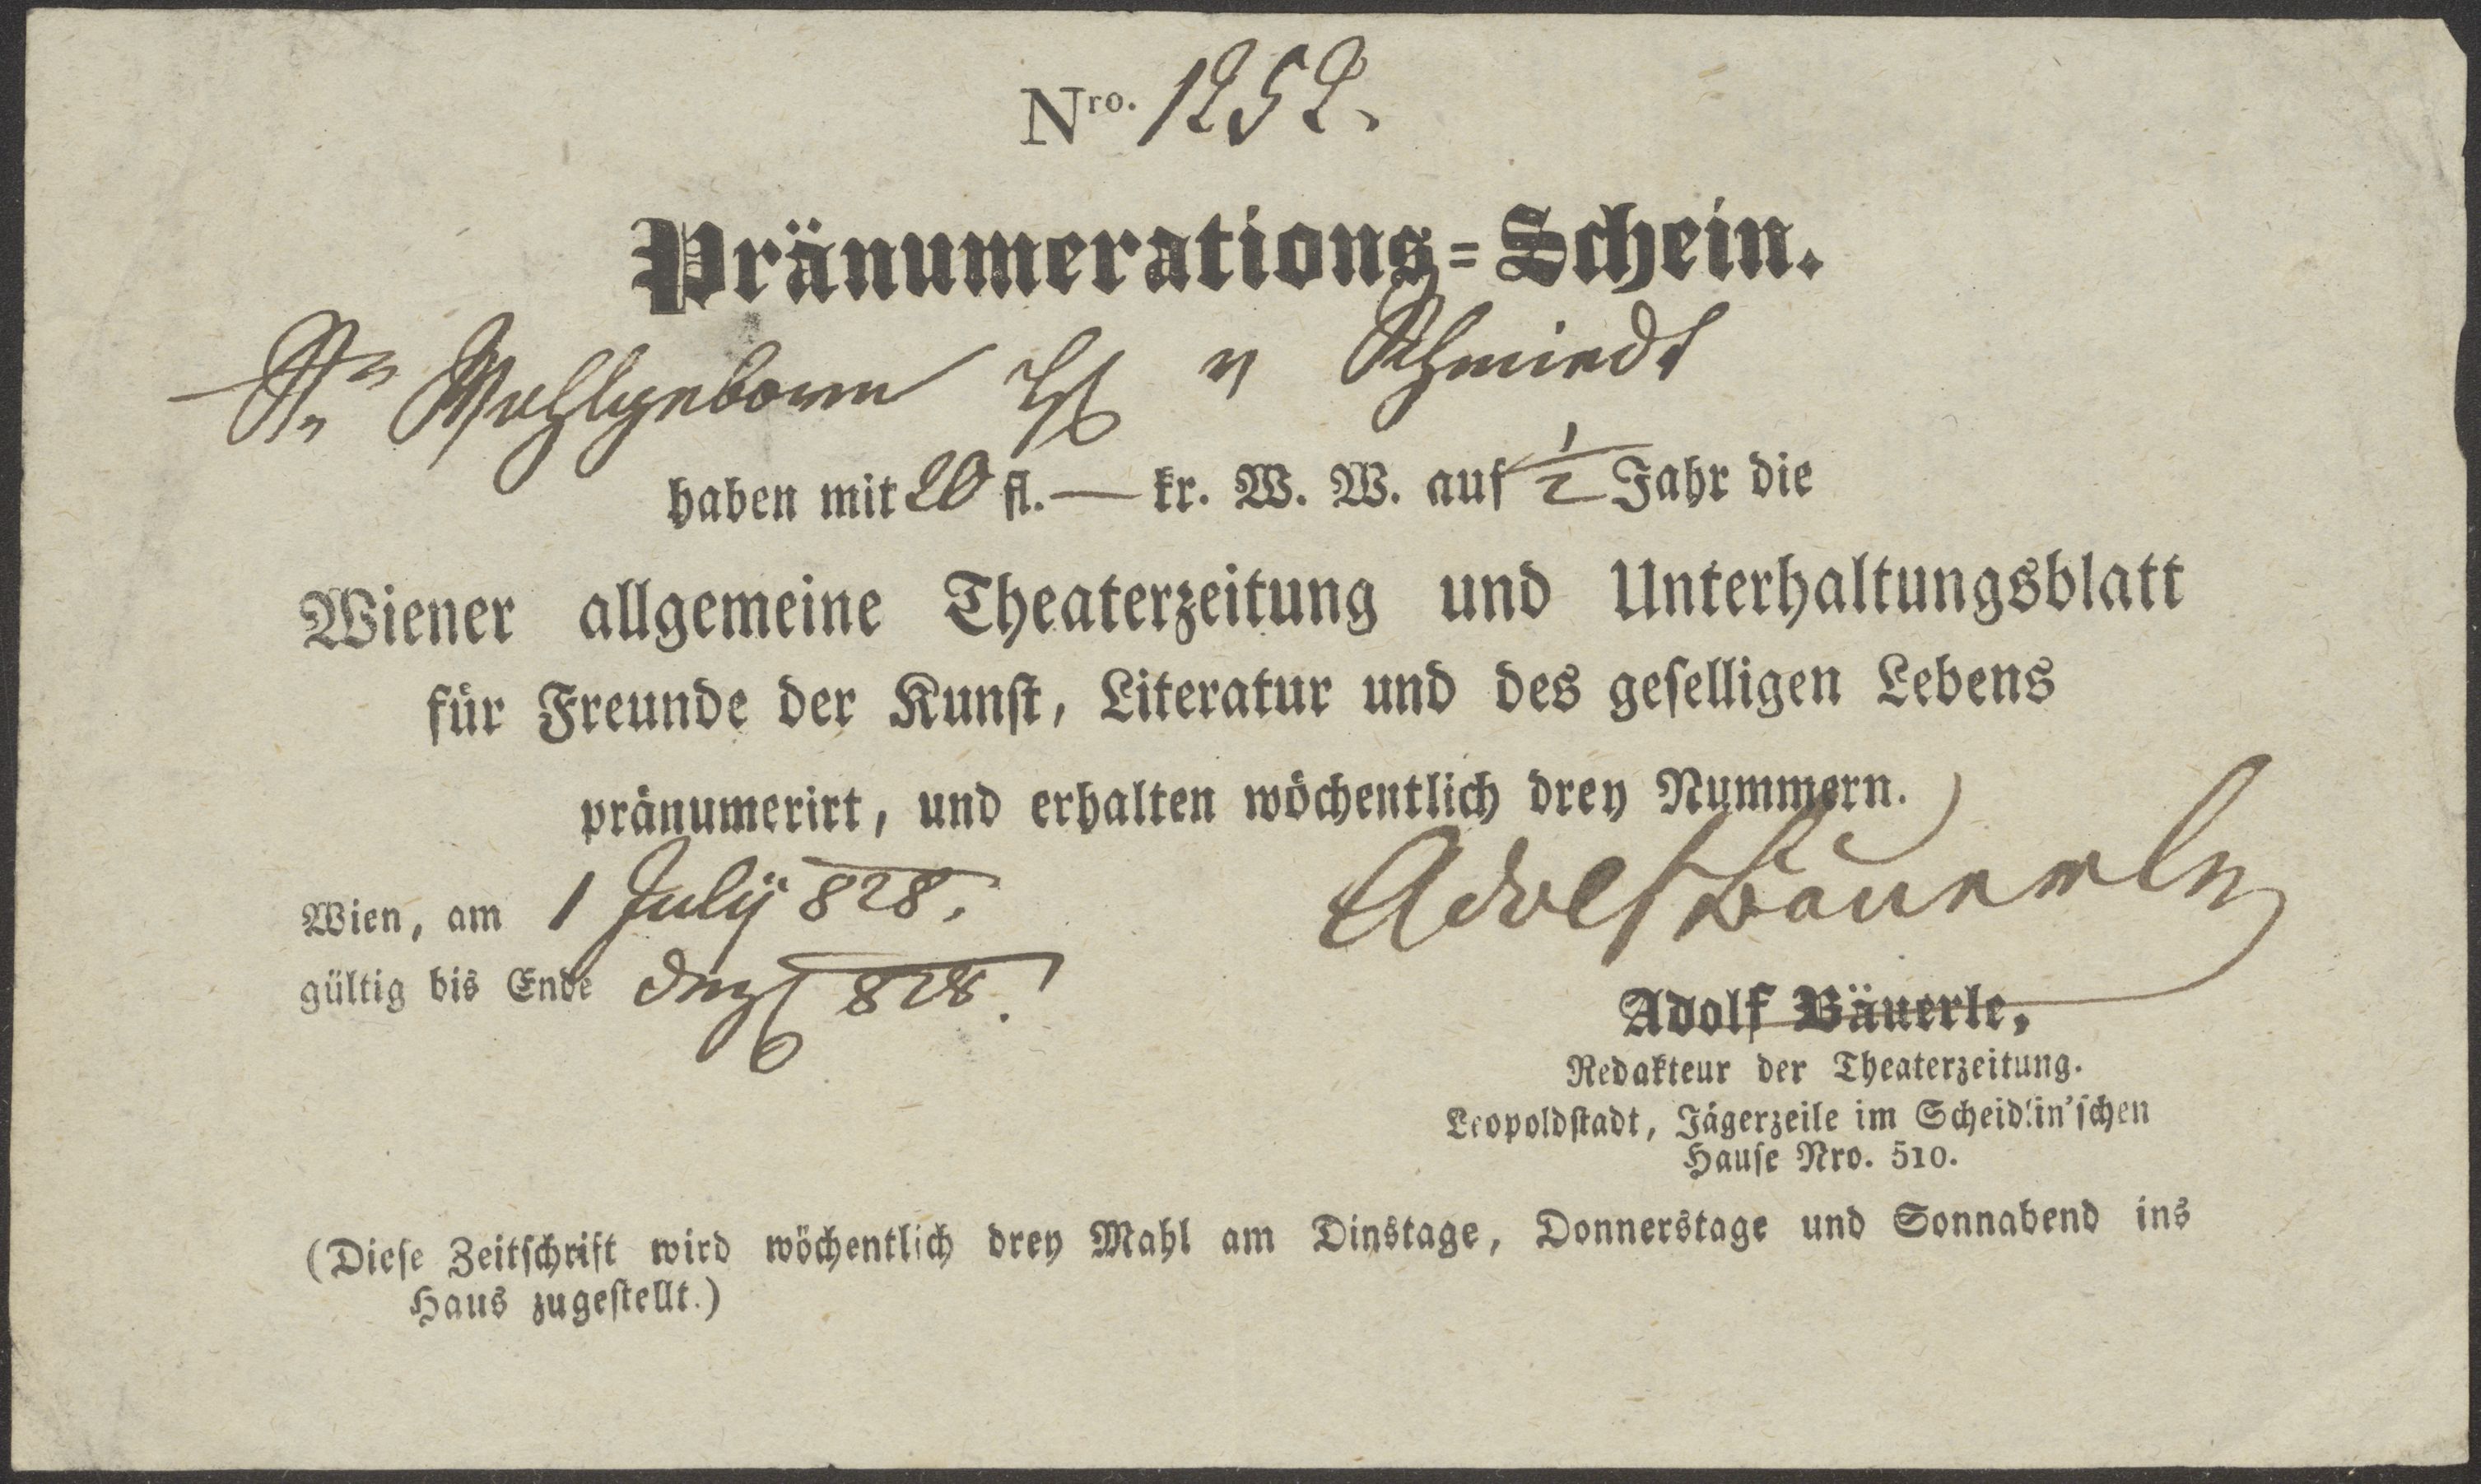 Nro. 1252.
Pränumerations=Schein.
Sr Wohlgeboren H v Schmiedt
haben mit 20 fl. — kr. W. W. auf 1/2 Jahr die
Wiener allgemeine Theaterzeitung und Unterhaltungsblatt
für Freunde der Kunſt, Literatur und des geſelligen Lebens
pränumerirt, und erhalten wöchentlich drey Nummern.
Wien, am 1 July 828.
gültig bis Ende Dezb 828.
Adolf Bäuerle
Adolf Bäuerle,
Redakteur der Theaterzeitung.
Leopoldſtadt, Jägerzeile im Scheidlin'ſchen
Hauſe Nro. 510.
(Dieſe Zeitſchrift wird wöchentlich drey Mahl am Dinstage, Donnerstage und Sonnabend ins
Haus zugeſtellt.)